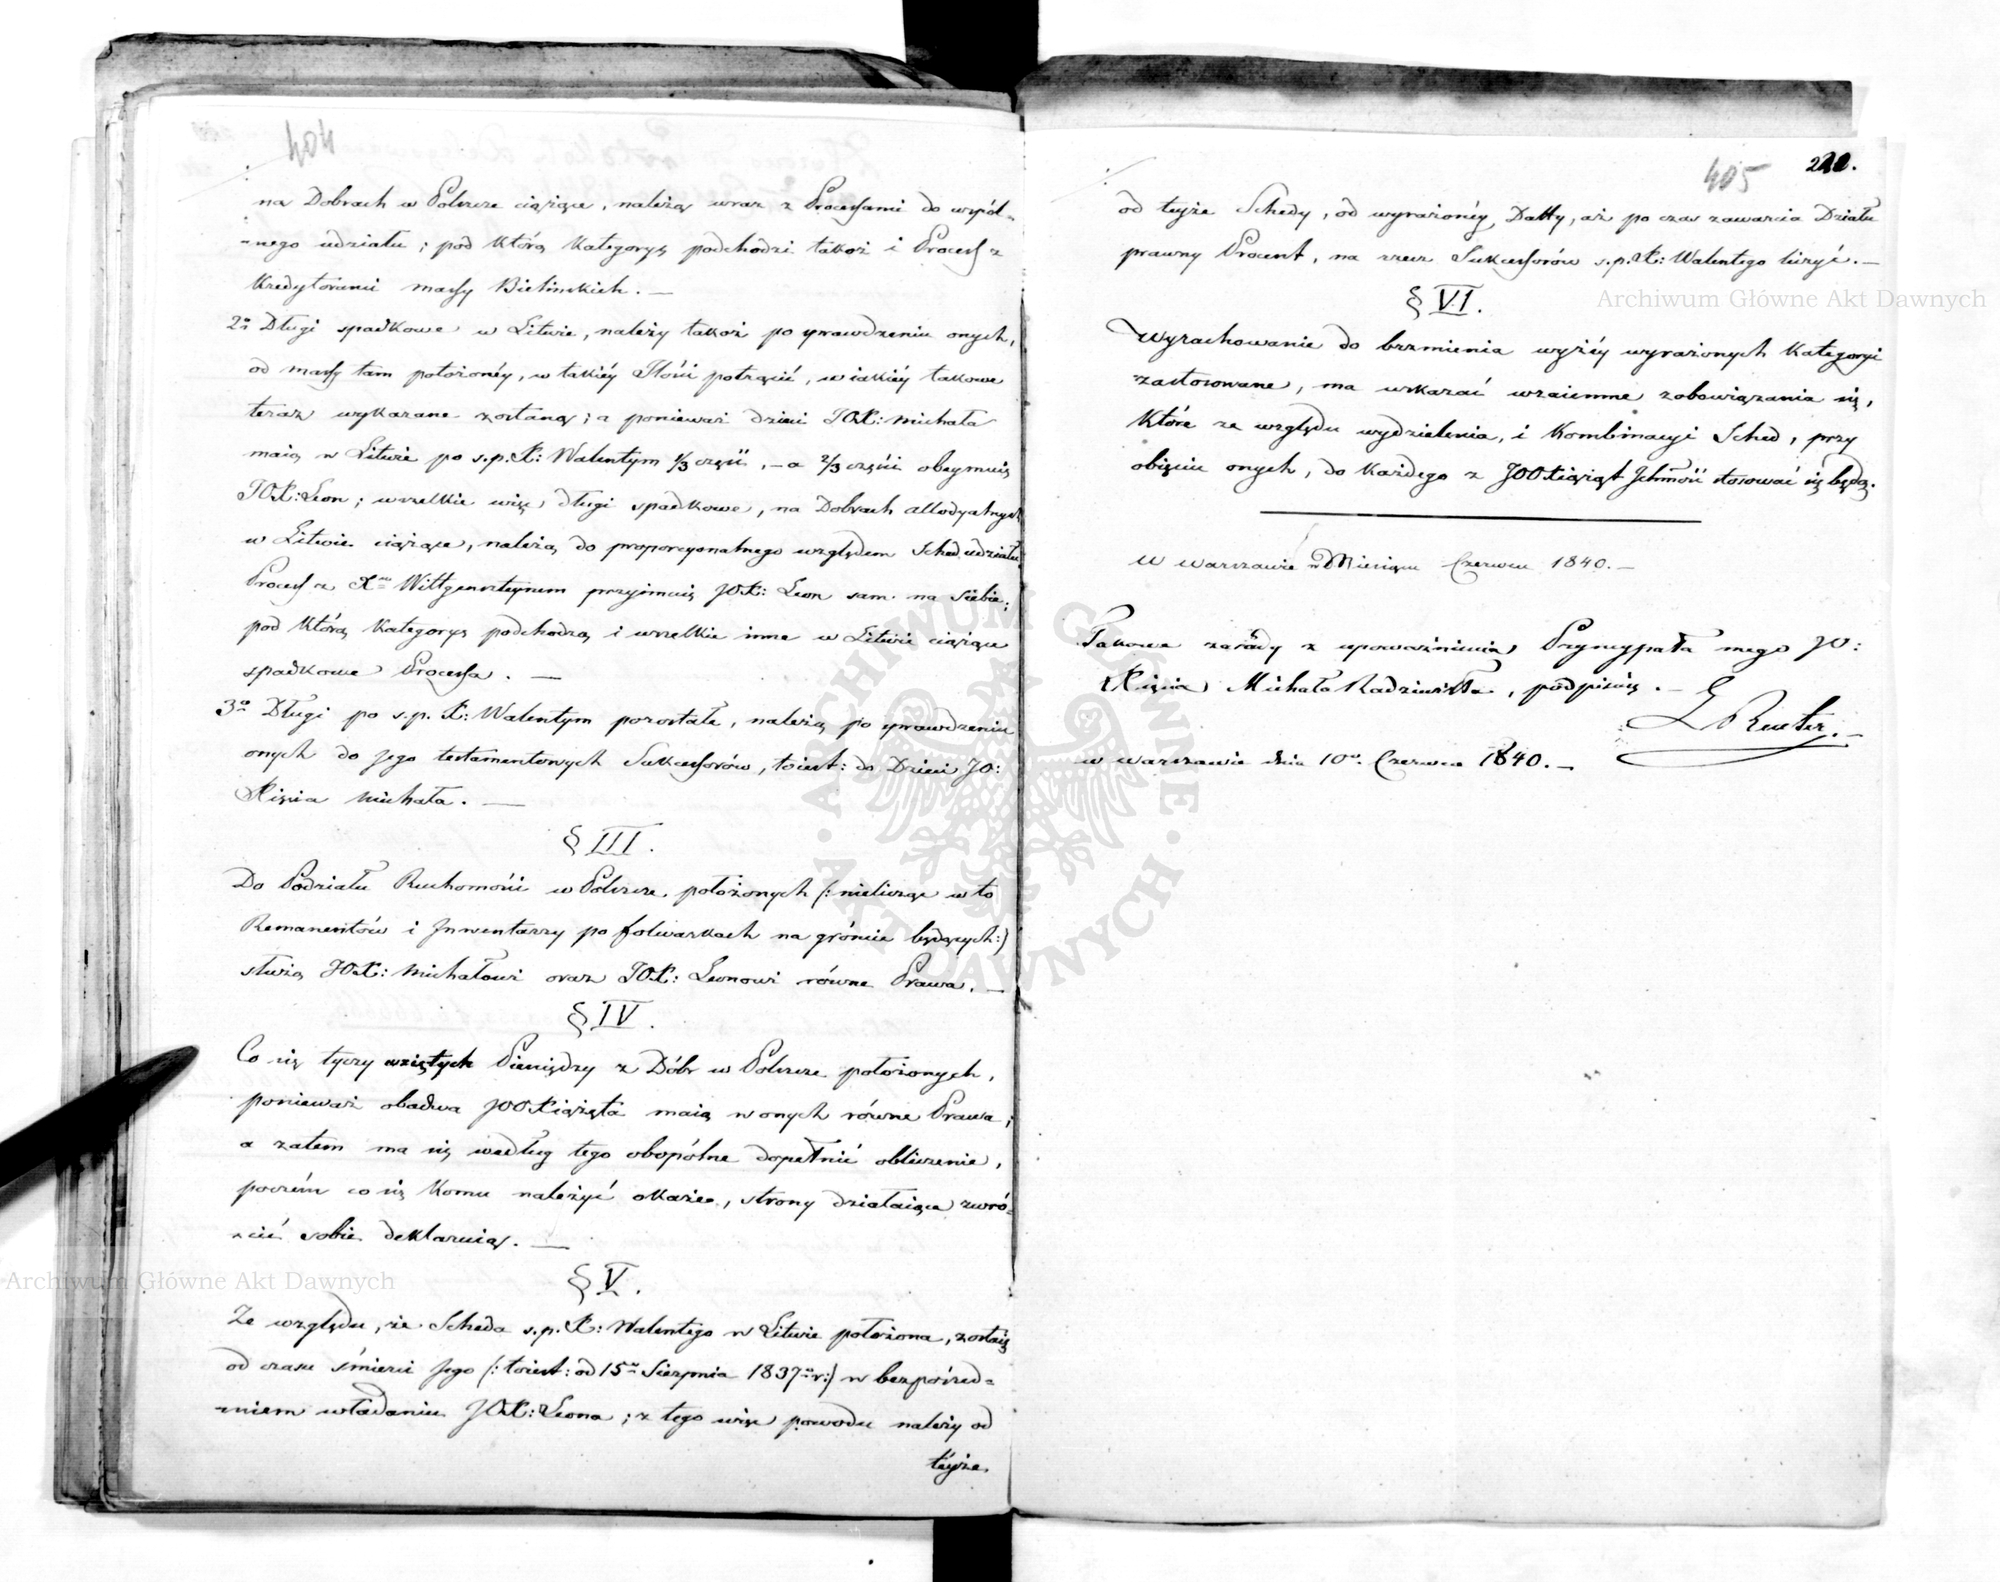 404
na Dobrach w Polszcze ciążące, należą wraz z Processami do wspól-
-nego udziału; pod którą kategoryą podchodzi także i Process z
Kredytorami massy Bielinskich. —
2o Długi spadkowe w Litwie, należy także po sprawdzeniu onych,
od massy tam położonéy, w takiéy Ilości potrącić, w iakiéy takowe
teraz wykazane zostaną; a ponieważ dzieci JOX: Michała
maią w Litwie po s.p. X: Walentym 1/3 części, – a 2/3 części obeymuie
JOX: Leon; wszelkie więc długi spadkowe, na Dobrach allodyalnych
w Litwie ciążące, należą do proporcyonalnego względem Sched udziału
Process z Xm Wittgensteynem przyimuie JOX: Leon sam na siebie;
pod którą kategoryą podchodzą i wszelkie inne w Litwie ciążące
spadkowe Processa. —
3o Długi po s.p. X: Walentym pozostałe, należą po sprawdzeniu
onych do Jego testamentowych Sukcessorów, toiest: do Dzieci JO:
Xięcia Michała. —
§ III.
Do Podziału Ruchomości w Polszcze położonych (: nielicząc w to
Remanentów i Inwentarzy po folwarkach na gróncie będących:)
służą JOX: Michałowi oraz JOX: Leonowi równe Prawa. —
§ IV.
Co się tyczy wziętych Pieniędzy z Dóbr w Polszcze położonych,
ponieważ obadwa JOOXiążęta maią w onych równe Prawa;
a zatem ma się według tego obopólne dopełnić obliczenie,
poczém co się komu należyć okaże, strony działaiące zwró-
-cić sobie deklaruią. —
§ V.
Ze względu, że Scheda s.p. X: Walentego w Litwie położona, zostaie
od czasu śmierci Jego (: toiest: od 15o Sierpnia 1837o r:) w bezpośred-
-niem władaniu JOX: Leona; z tego więc powodu należy od
téyże
405
od téyże Schedy, od wyrażonéy Datty, aż po czas zawarcia Działu
prawny Procent, na rzecz Sukcessorów s.p. X: Walentego liczyć. —
§ VI.
Wyrachowanie do brzmienia wyżéy wyrażonych kategoryi
zastosowane, ma wskazać wzaiemne zobowiązania się,
które ze względu wydzielenia, i kombinacyi Sched, przy
obięciu onych, do każdego z JOOXiążąt Ichmość stosować się będą.
w Warszawie w Miesiącu Czerwcu 1840. —
Takowe zasady z upoważnienia Pryncypała mego JO:
Xięcia Michała Radziwiłła, podpisuię. —
Reuter.
w Warszawie dnia 10o Czerwca 1840. —
Archiwum Główne Akt Dawnych
Archiwum Główne Akt Dawnych
ARCHIWUM GŁÓWNE AKT DAWNYCH